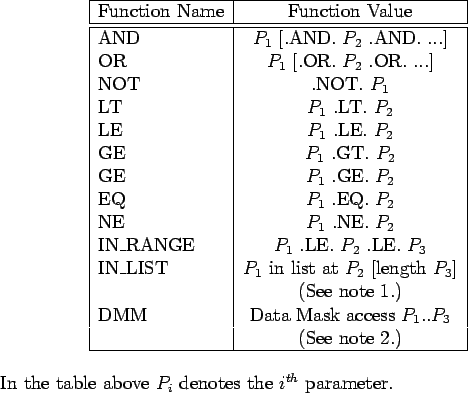 Function Name Function Value
AND P₁ [.AND. P₂ .AND. ...]
OR P₁ [.OR. P₂ .OR. ...]
NOT .NOT. P₁
LT P₁ .LT. P₂
LE P₁ .LE. P₂
GE P₁ .GT. P₂
GE P₁ .GE. P₂
EQ P₁ .EQ. P₂
NE P₁ .NE. P₂
IN_RANGE P₁ .LE. P₂ .LE. P₃
IN_LIST P₁ in list at P₂ [length P₃]
(See note 1.)
DMM Data Mask access P₁..P₃
(See note 2.)
In the table above Pᵢ denotes the iᵗʰ parameter.